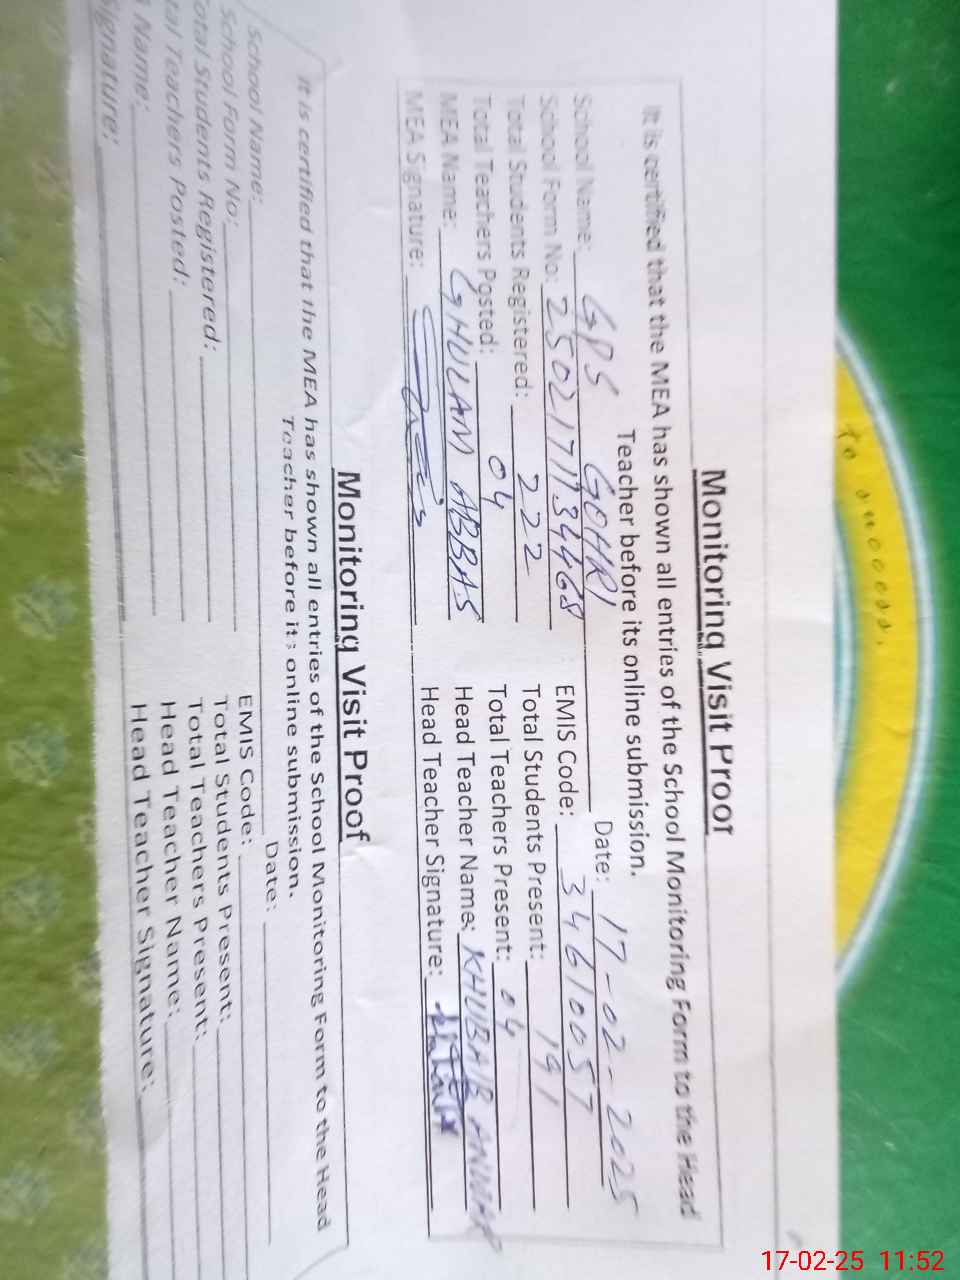 to success.
Monitoring Visit Proof
It is certified that the MEA has shown all entries of the School Monitoring Form to the Head
Teacher before its online submission.
School Name: GPS GOHRI Date: 17-02-2025
School Form No: 2502171734468 EMIS Code: 34610057
Total Students Registered: 222 Total Students Present: 191
Total Teachers Posted: 04 Total Teachers Present: 04
MEA Name: GHULAM ABBAS Head Teacher Name: KHUBAIB ANWAR
MEA Signature: Head Teacher Signature:
Monitoring Visit Proof
It is certified that the MEA has shown all entries of the School Monitoring Form to the Head
Teacher before its online submission.
School Name: Date:
School Form No: EMIS Code:
Total Students Registered: Total Students Present:
tal Teachers Posted: Total Teachers Present:
Name: Head Teacher Name:
Signature: Head Teacher Signature:
17-02-25 11:52